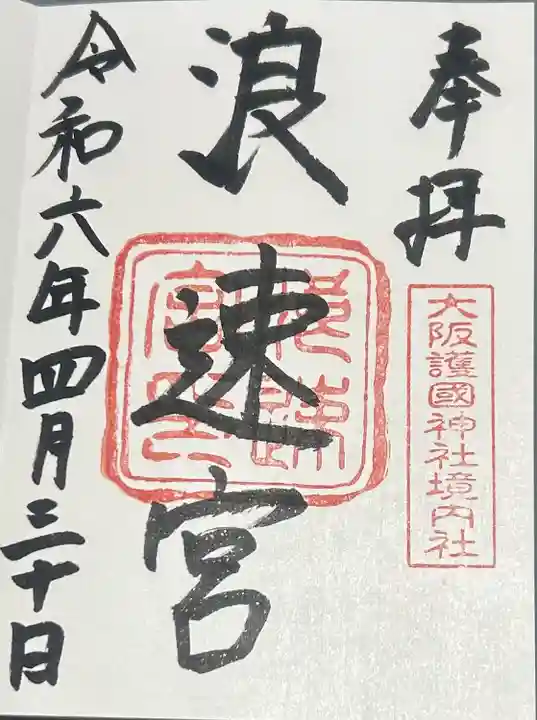 奉拝
大阪護國神社境内社
浪速宮
令和六年四月三十日